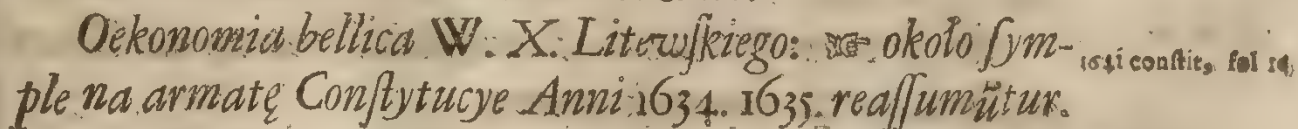 Oekonomia bellica W. X. Litewſkiego: ☞ około ſym-
ple na armatę Conſtytucye Anni 1634. 1635. reaſſumũtur.
1641 conſtit, fol 14,